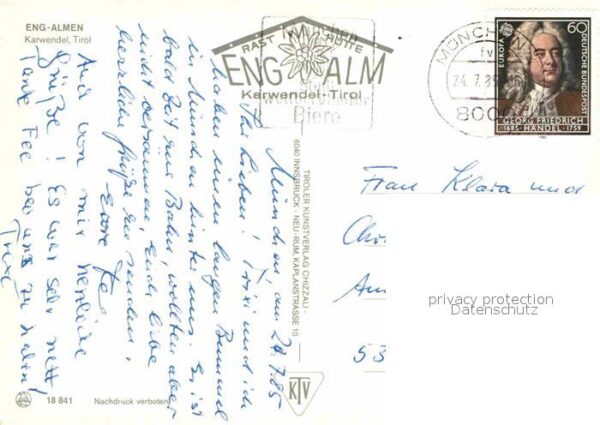 ENG-ALMEN
Karwendel, Tirol
RAST HÜTTE
ENG ALM
Karwendel-Tirol
Biere
MÜNCHEN
fv
24.7.85
800
EUROPA
60
DEUTSCHE BUNDESPOST
GEORG FRIEDRICH
1685 HÄNDEL 1759
München, den 24.7.85
Ihr Lieben! Trixi und ich
haben einen langen Bummel
in München hinter uns. Es ist
bald Zeit zur Bahn, wollten aber
nicht versäumen, Euch liebe
herzliche Grüße zu senden,
Eure Fee
Auch von mir herzliche
Grüße! Es war sehr nett
Tante Fee bei uns zu haben!
Trixi
TIROLER KUNSTVERLAG CHIZZALI
6040 INNSBRUCK - NEU-RUM, KAPLANSTRASSE 10
KTV
Frau Klara und
53
privacy protection
Datenschutz
18 841 Nachdruck verboten